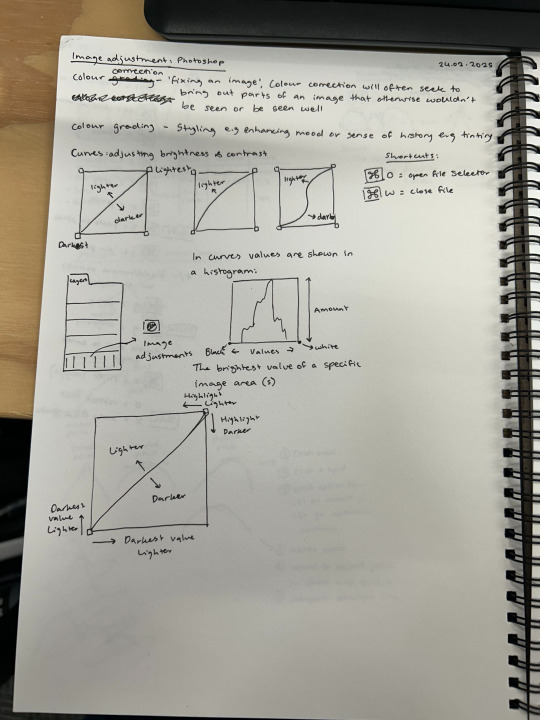 Image adjustment: Photoshop
24.02.2025
Colour correction - 'fixing an image', Colour correction will often seek to
bring out parts of an image that otherwise wouldn't
be seen or be seen well
Colour grading - Styling e.g enhancing mood or sense of history e.g tinting
Curves: adjusting brightness & contrast
Shortcuts:
⌘ O = open file selector
⌘ W = close file
Lightest
lighter
darker
Darkest
lighter
lighter
dark
In curves values are shown in
a histogram:
Layers
Image
adjustments
Amount
Black ← Values → white
The brightest value of a specific
image area (s)
Highlight
Lighter
Highlight
Darker
Lighter
Darker
Darkest
value
Lighter
→ Darkest value
Lighter